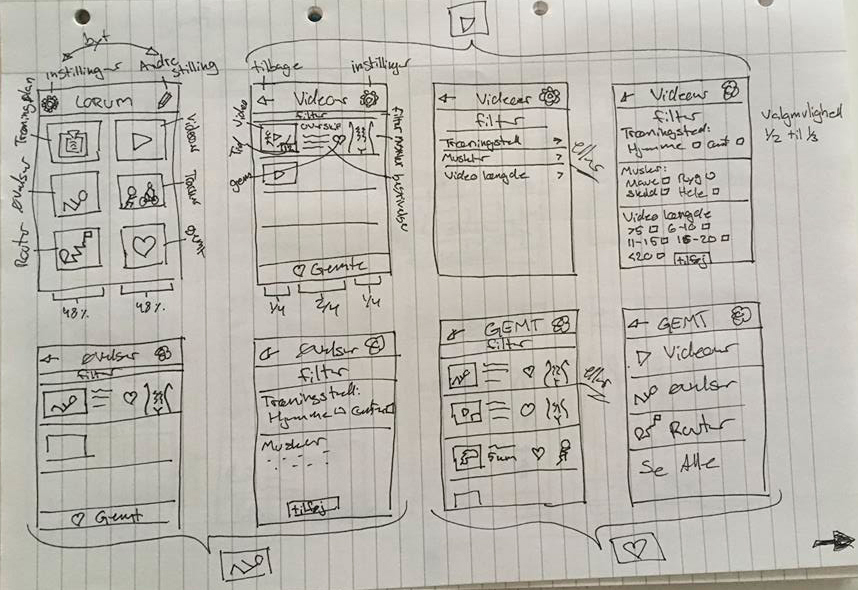 byt
instillinger
Andre stilling
LORUM
Træningsplan
øvelser
Router
Videour
gemt
48%
48%
tilbage
instillinger
← Videour
filter
overskr
Træ Video
gem
filter muskler
beskrivelse
♡ Gemte
1/4
2/4
1/4
← Videour
filter
Træningssted >
Muskler >
Video længde >
eller
← Videour
filter
Træningssted:
Hjemme □ cent □
Muskler:
Mave □ Ryg □
Skuld □ Hele □
Video længde
>5 □ 6-10 □
11-15 □ 16-20 □
<20 □ tilføj
Valgmulighed
1/2 til 1/3
← øvelser
filter
♡ Gemt
← øvelser
filter
Træningssted:
Hjemme □ center □
Muskler
tilføj
← GEMT
filter
5km
eller
← GEMT
Videour
øvelser
Router
Se Alle